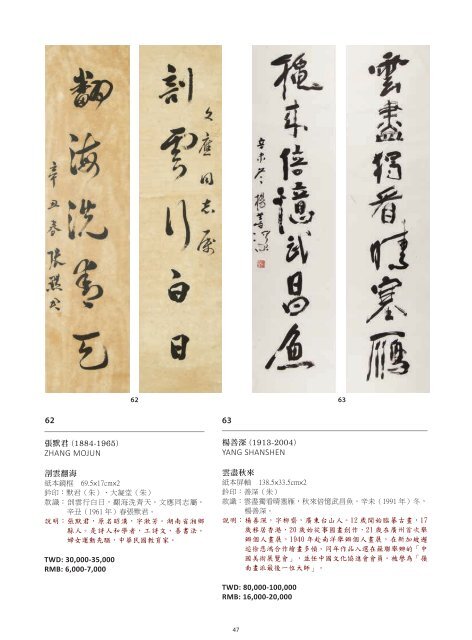 剖雲行白日
文應同志屬
翻海洗青天
辛丑春張默君
雲盡獨看晴塞雁
秋來倍憶武昌魚
辛未冬楊善深
62
63
62
張默君 (1884-1965)
ZHANG MOJUN
剖雲翻海
紙本鏡框 69.5x17cmx2
鈐印：默君（朱）、大凝堂（朱）
款識：剖雲行白日，翻海洗青天。文應同志屬，
辛丑（1961年）春張默君。
說明：張默君，原名昭漢，字漱芳。湖南省湘鄉
縣人。是詩人和學者，工詩文，善書法。
婦女運動先驅，中華民國教育家。
TWD: 30,000-35,000
RMB: 6,000-7,000
63
楊善深 (1913-2004)
YANG SHANSHEN
雲盡秋來
紙本屏軸 138.5x33.5cmx2
鈐印：善深（朱）
款識：雲盡獨看晴塞雁，秋來倍憶武昌魚。辛未（1991年）冬，
楊善深。
說明：楊善深，字柳齋，廣東台山人。12歲開始臨摹古畫，17
歲移居香港，20歲始從事國畫創作，21歲在廣州首次舉
辦個人畫展，1940年赴南洋舉辦個人畫展，在新加坡邂
逅徐悲鴻合作繪畫多幀。同年作品入選在蘇聯舉辦的「中
國美術展覽會」，並任中國文化協進會會員。被譽為「嶺
南畫派最後一位大師」。
TWD: 80,000-100,000
RMB: 16,000-20,000
47